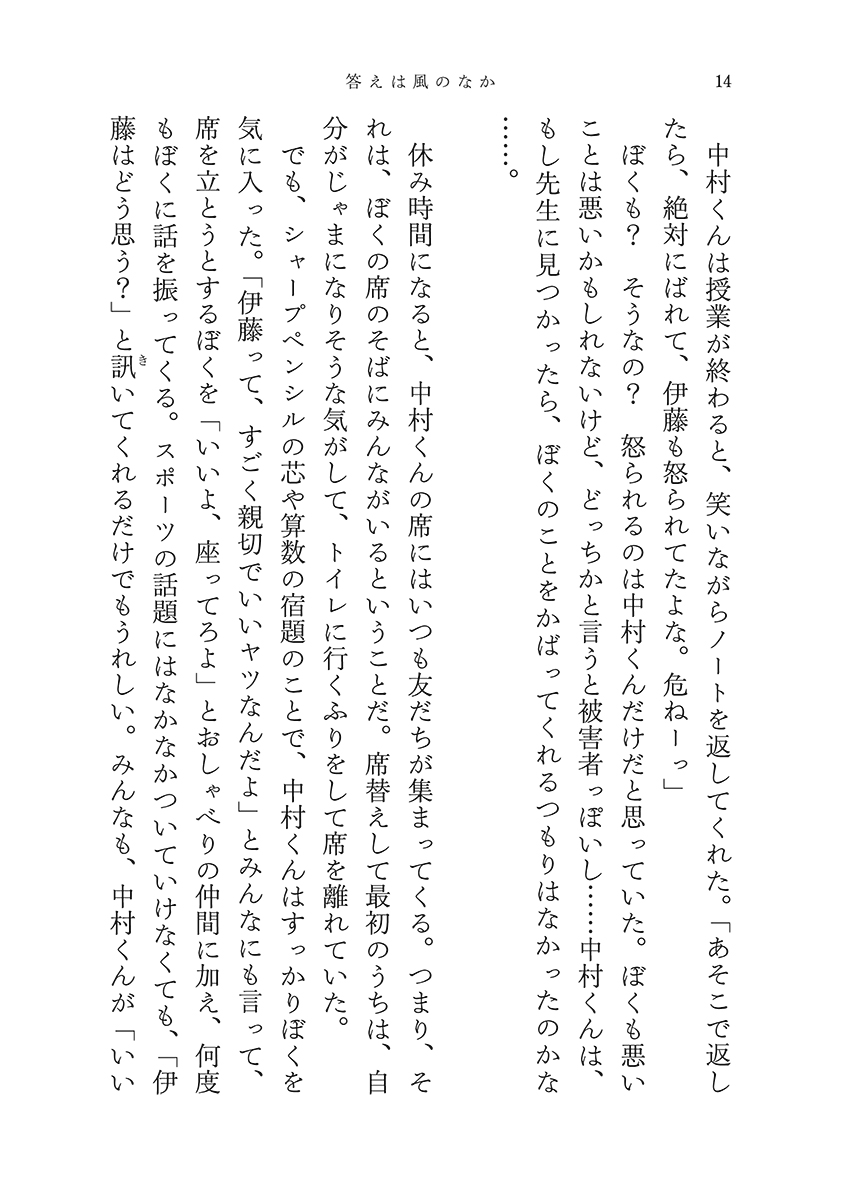 答えは風のなか
14
　中村くんは授業が終わると、笑いながらノートを返してくれた。「あそこで返し
たら、絶対にばれて、伊藤も怒られてたよな。危ねーっ」
　ぼくも？　そうなの？　怒られるのは中村くんだけだと思っていた。ぼくも悪い
ことは悪いかもしれないけど、どっちかと言うと被害者っぽいし……中村くんは、
もし先生に見つかったら、ぼくのことをかばってくれるつもりはなかったのかな
……。
　休み時間になると、中村くんの席にはいつも友だちが集まってくる。つまり、そ
れは、ぼくの席のそばにみんながいるということだ。席替えして最初のうちは、自
分がじゃまになりそうな気がして、トイレに行くふりをして席を離れていた。
　でも、シャープペンシルの芯や算数の宿題のことで、中村くんはすっかりぼくを
気に入った。「伊藤って、すごく親切でいいヤツなんだよ」とみんなにも言って、
席を立とうとするぼくを「いいよ、座ってろよ」とおしゃべりの仲間に加え、何度
もぼくに話を振ってくる。スポーツの話題にはなかなかついていけなくても、「伊
藤はどう思う？」と訊いてくれるだけでもうれしい。みんなも、中村くんが「いい
き